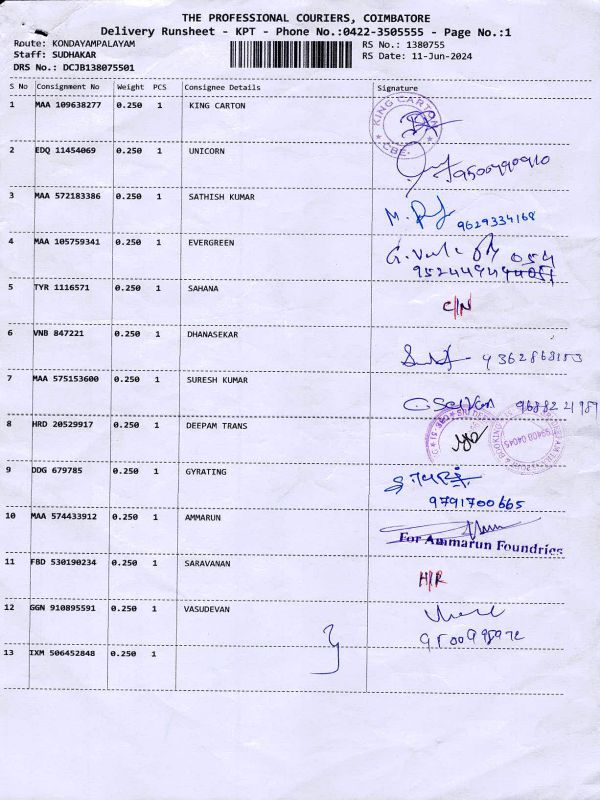 THE PROFESSIONAL COURIERS, COIMBATORE
Delivery Runsheet - KPT - Phone No.:0422-3505555 - Page No.:1
Route: KONDAYAMPALAYAM
Staff: SUDHAKAR
DRS No.: DCJB138075501
RS No.: 1380755
RS Date: 11-Jun-2024
S No Consignment No Weight PCS Consignee Details Signature
1 MAA 109638277 0.250 1 KING CARTON
KING CARTON
CBE.
2 EDQ 11454069 0.250 1 UNICORN
9500490910
3 MAA 572183386 0.250 1 SATHISH KUMAR
M. 9629334168
4 MAA 105759341 0.250 1 EVERGREEN
G. 054
5 TYR 1116571 0.250 1 SAHANA
C/N
6 VNB 847221 0.250 1 DHANASEKAR
9362868153
7 MAA 575153600 0.250 1 SURESH KUMAR
C Selvan 9688221989
8 HRD 20529917 0.250 1 DEEPAM TRANS
9 DDG 679785 0.250 1 GYRATING
9791700665
10 MAA 574433912 0.250 1 AMMARUN
For Ammarun Foundries
11 FBD 530190234 0.250 1 SARAVANAN
H/R
12 GGN 910895591 0.250 1 VASUDEVAN
13 IXM 506452848 0.250 1